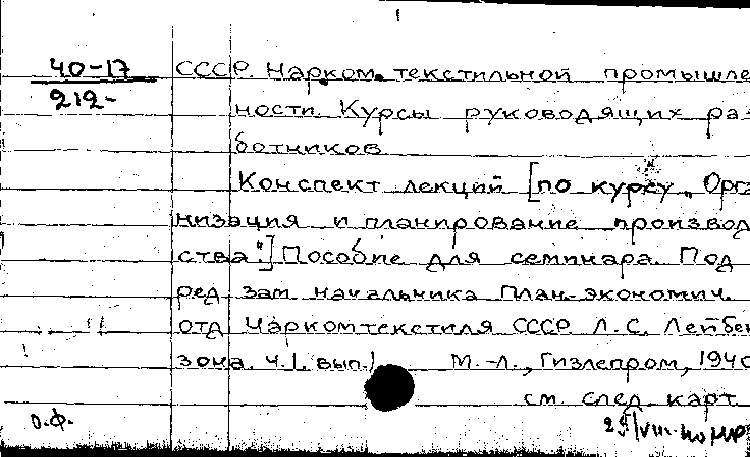 40-17
212-
СССР. Нарком. текстильной промышле
ности. Курсы руководящих ра
ботников
Конспект лекций [по курсу „Орга
низация и планирование производ
ства".] Пособие для семинара. Под
ред. зам. начальника план.-экономич.
отд. Наркомтекстиля СССР Л.С. Лейбен
зона. Ч.I. вып.I М.-Л., Гизлепром, 1940
см. след. карт.
О.Ф.